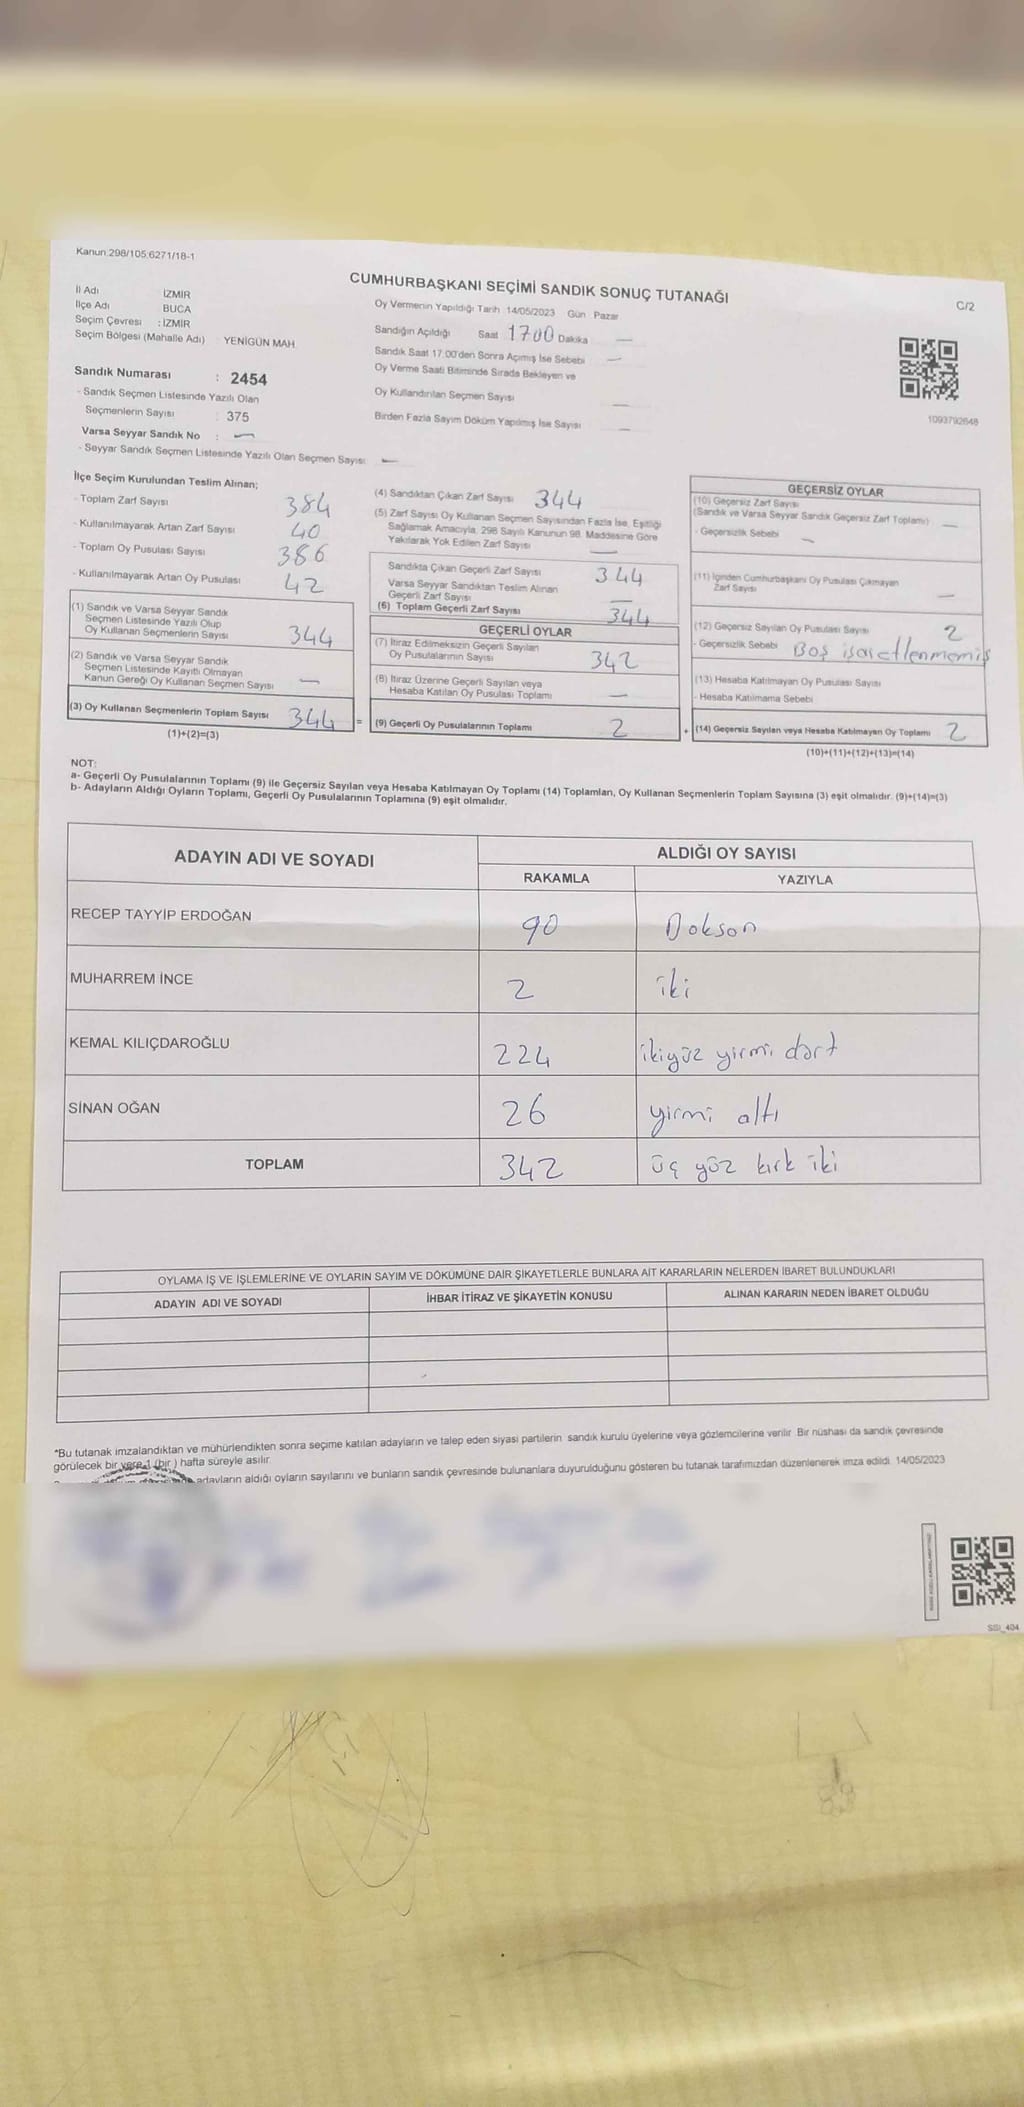 Kanun:298/105;6271/18-1
CUMHURBAŞKANI SEÇİMİ SANDIK SONUÇ TUTANAĞI
C/2
İl Adı İZMİR
İlçe Adı BUCA
Seçim Çevresi : İZMİR
Seçim Bölgesi (Mahalle Adı) YENİGÜN MAH.
Sandık Numarası : 2454
- Sandık Seçmen Listesinde Yazılı Olan
Seçmenlerin Sayısı : 375
Varsa Seyyar Sandık No : —
- Seyyar Sandık Seçmen Listesinde Yazılı Olan Seçmen Sayısı —
Oy Vermenin Yapıldığı Tarih 14/05/2023 Gün Pazar
Sandığın Açıldığı Saat 1700 Dakika —
Sandık Saat 17.00'den Sonra Açımış İse Sebebi —
Oy Verme Saati Bitiminde Sırada Bekleyen ve
Oy Kullandırılan Seçmen Sayısı —
Birden Fazla Sayım Döküm Yapılmış İse Sayısı —
1093792648
İlçe Seçim Kurulundan Teslim Alınan;
- Toplam Zarf Sayısı 384
- Kullanılmayarak Artan Zarf Sayısı 40
- Toplam Oy Pusulası Sayısı 386
- Kullanılmayarak Artan Oy Pusulası 42
(1) Sandık ve Varsa Seyyar Sandık
Seçmen Listesinde Yazılı Olup
Oy Kullanan Seçmenlerin Sayısı 344
(2) Sandık ve Varsa Seyyar Sandık
Seçmen Listesinde Kayıtlı Olmayan
Kanun Gereği Oy Kullanan Seçmen Sayısı —
(3) Oy Kullanan Seçmenlerin Toplam Sayısı 344 =
(1)+(2)=(3)
(4) Sandıktan Çıkan Zarf Sayısı 344
(5) Zarf Sayısı Oy Kullanan Seçmen Sayısından Fazla İse, Eşitliği
Sağlamak Amacıyla, 298 Sayılı Kanunun 98. Maddesine Göre
Yakılarak Yok Edilen Zarf Sayısı —
Sandıkta Çıkan Geçerli Zarf Sayısı 344
Varsa Seyyar Sandıktan Teslim Alınan
Geçerli Zarf Sayısı —
(6) Toplam Geçerli Zarf Sayısı 344
GEÇERLİ OYLAR
(7) İtiraz Edilmeksizin Geçerli Sayılan
Oy Pusulalarının Sayısı 342
(8) İtiraz Üzerine Geçerli Sayılan veya
Hesaba Katılan Oy Pusulası Toplamı —
(9) Geçerli Oy Pusulalarının Toplamı 2 +
GEÇERSİZ OYLAR
(10) Geçersiz Zarf Sayısı
(Sandık ve Varsa Seyyar Sandık Geçersiz Zarf Toplamı) —
- Geçersizlik Sebebi —
(11) İçinden Cumhurbaşkanı Oy Pusulası Çıkmayan
Zarf Sayısı —
(12) Geçersiz Sayılan Oy Pusulası Sayısı 2
- Geçersizlik Sebebi Boş işaretlenmemiş
(13) Hesaba Katılmayan Oy Pusulası Sayısı
- Hesaba Katılmama Sebebi
(14) Geçersiz Sayılan veya Hesaba Katılmayan Oy Toplamı 2
(10)+(11)+(12)+(13)=(14)
NOT:
a- Geçerli Oy Pusulalarının Toplamı (9) ile Geçersiz Sayılan veya Hesaba Katılmayan Oy Toplamı (14) Toplamları, Oy Kullanan Seçmenlerin Toplam Sayısına (3) eşit olmalıdır. (9)+(14)=(3)
b- Adayların Aldığı Oyların Toplamı, Geçerli Oy Pusulalarının Toplamına (9) eşit olmalıdır.
ADAYIN ADI VE SOYADI
ALDIĞI OY SAYISI
RAKAMLA YAZIYLA
RECEP TAYYİP ERDOĞAN 90 Doksan
MUHARREM İNCE 2 iki
KEMAL KILIÇDAROĞLU 224 ikiyüz yirmi dört
SİNAN OĞAN 26 yirmi altı
TOPLAM 342 üç yüz kırk iki
OYLAMA İŞ VE İŞLEMLERİNE VE OYLARIN SAYIM VE DÖKÜMÜNE DAİR ŞİKAYETLERLE BUNLARA AİT KARARLARIN NELERDEN İBARET BULUNDUKLARI
ADAYIN ADI VE SOYADI İHBAR İTİRAZ VE ŞİKAYETİN KONUSU ALINAN KARARIN NEDEN İBARET OLDUĞU
*Bu tutanak imzalandıktan ve mühürlendikten sonra seçime katılan adayların ve talep eden siyasi partilerin sandık kurulu üyelerine veya gözlemcilerine verilir. Bir nüshası da sandık çevresinde
görülecek bir yere 1 (bir ) hafta süreyle asılır.
adayların aldığı oyların sayılarını ve bunların sandık çevresinde bulunanlara duyurulduğunu gösteren bu tutanak tarafımızdan düzenlenerek imza edildi. 14/05/2023
SSI_404